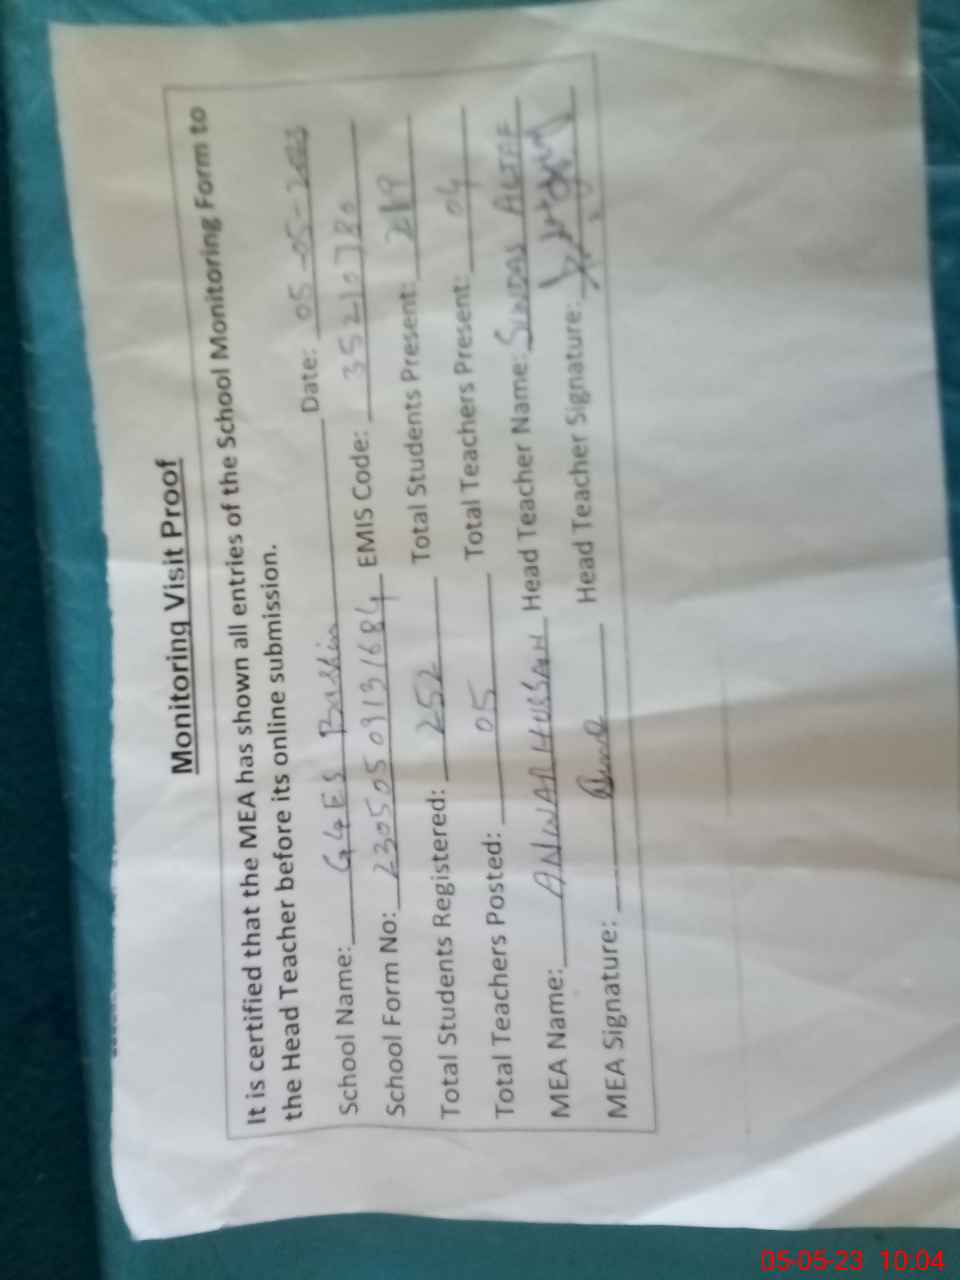 Monitoring Visit Proof
It is certified that the MEA has shown all entries of the School Monitoring Form to
the Head Teacher before its online submission.
School Name: GGES Date: 05-05-2023
School Form No: 23050509131684 EMIS Code: 35210780
Total Students Registered: 252 Total Students Present:
Total Teachers Posted: 05 Total Teachers Present: 04
MEA Name: ANWAR HUSSAIN Head Teacher Name: SUNDAS ALTAF
MEA Signature: Head Teacher Signature:
05-05-23 10:04